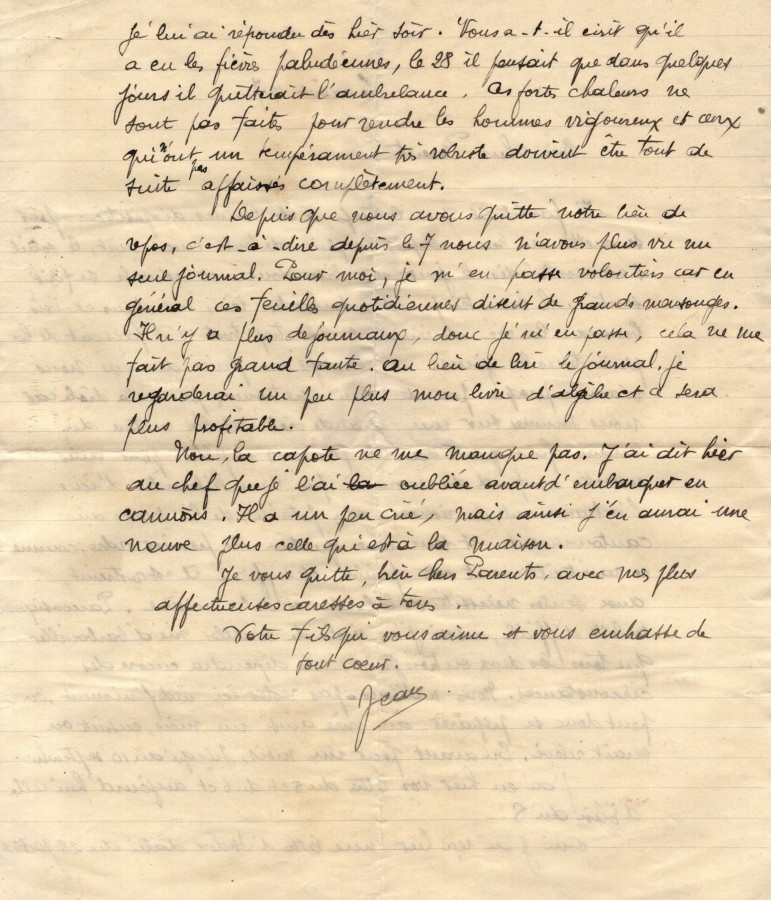 Je lui ai répondu dès hier soir. Vous a-t-il écrit qu'il
a eu les fièvres paludéennes, le 28 il pensait que dans quelques
jours il quitterait l'ambulance. Ces fortes chaleurs ne
sont pas faites pour rendre les hommes vigoureux et ceux
qui n'ont pas un tempérament très robuste doivent être tout de
suite affaissés complètement.
Depuis que nous avons quitté notre lieu de
repos, c'est-à-dire depuis le 7 nous n'avons plus vu un
seul journal. Pour moi, je m'en passe volontiers car en
général ces feuilles quotidiennes disent de grands mensonges.
Il n'y a plus de journaux, donc je m'en passe, cela ne me
fait pas grand faute. Au lieu de lire le journal, je
regarderai un peu plus mon livre d'algèbre et ce sera
plus profitable.
Non, la capote ne me manque pas. J'ai dit hier
au chef que je l'ai la oubliée avant d'embarquer en
camions. Il a un peu crié, mais ainsi j'en aurai une
neuve plus celle qui est à la maison.
Je vous quitte, bien chers Parents, avec mes plus
affectueuses caresses à tous.
Votre fils qui vous aime et vous embrasse de
tout coeur.
Jean